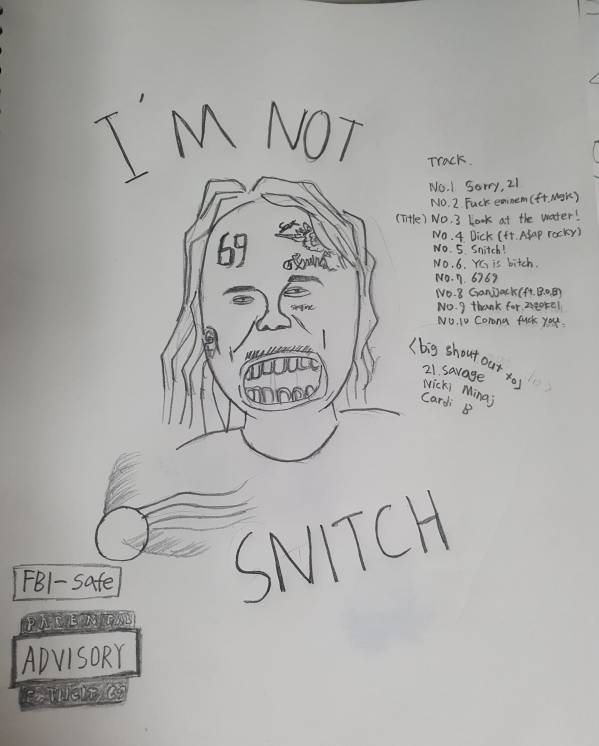 I'M NOT
Track.
No.1 Sorry, 21
No.2 Fuck eminem (ft. Mgk)
(Title) No.3 Look at the water!
No.4 Dick (ft. A$ap rocky)
No.5. Snitch!
No.6. YG is bitch.
No.7. 6969
No.8 Ganijack (ft. B.o.B)
No.9 thank for
No.10 Corona fuck you.
<big shout out to>
21 savage
Nicki Minaj
Cardi B
69
SNITCH
FBI-Safe
PARENTAL
ADVISORY